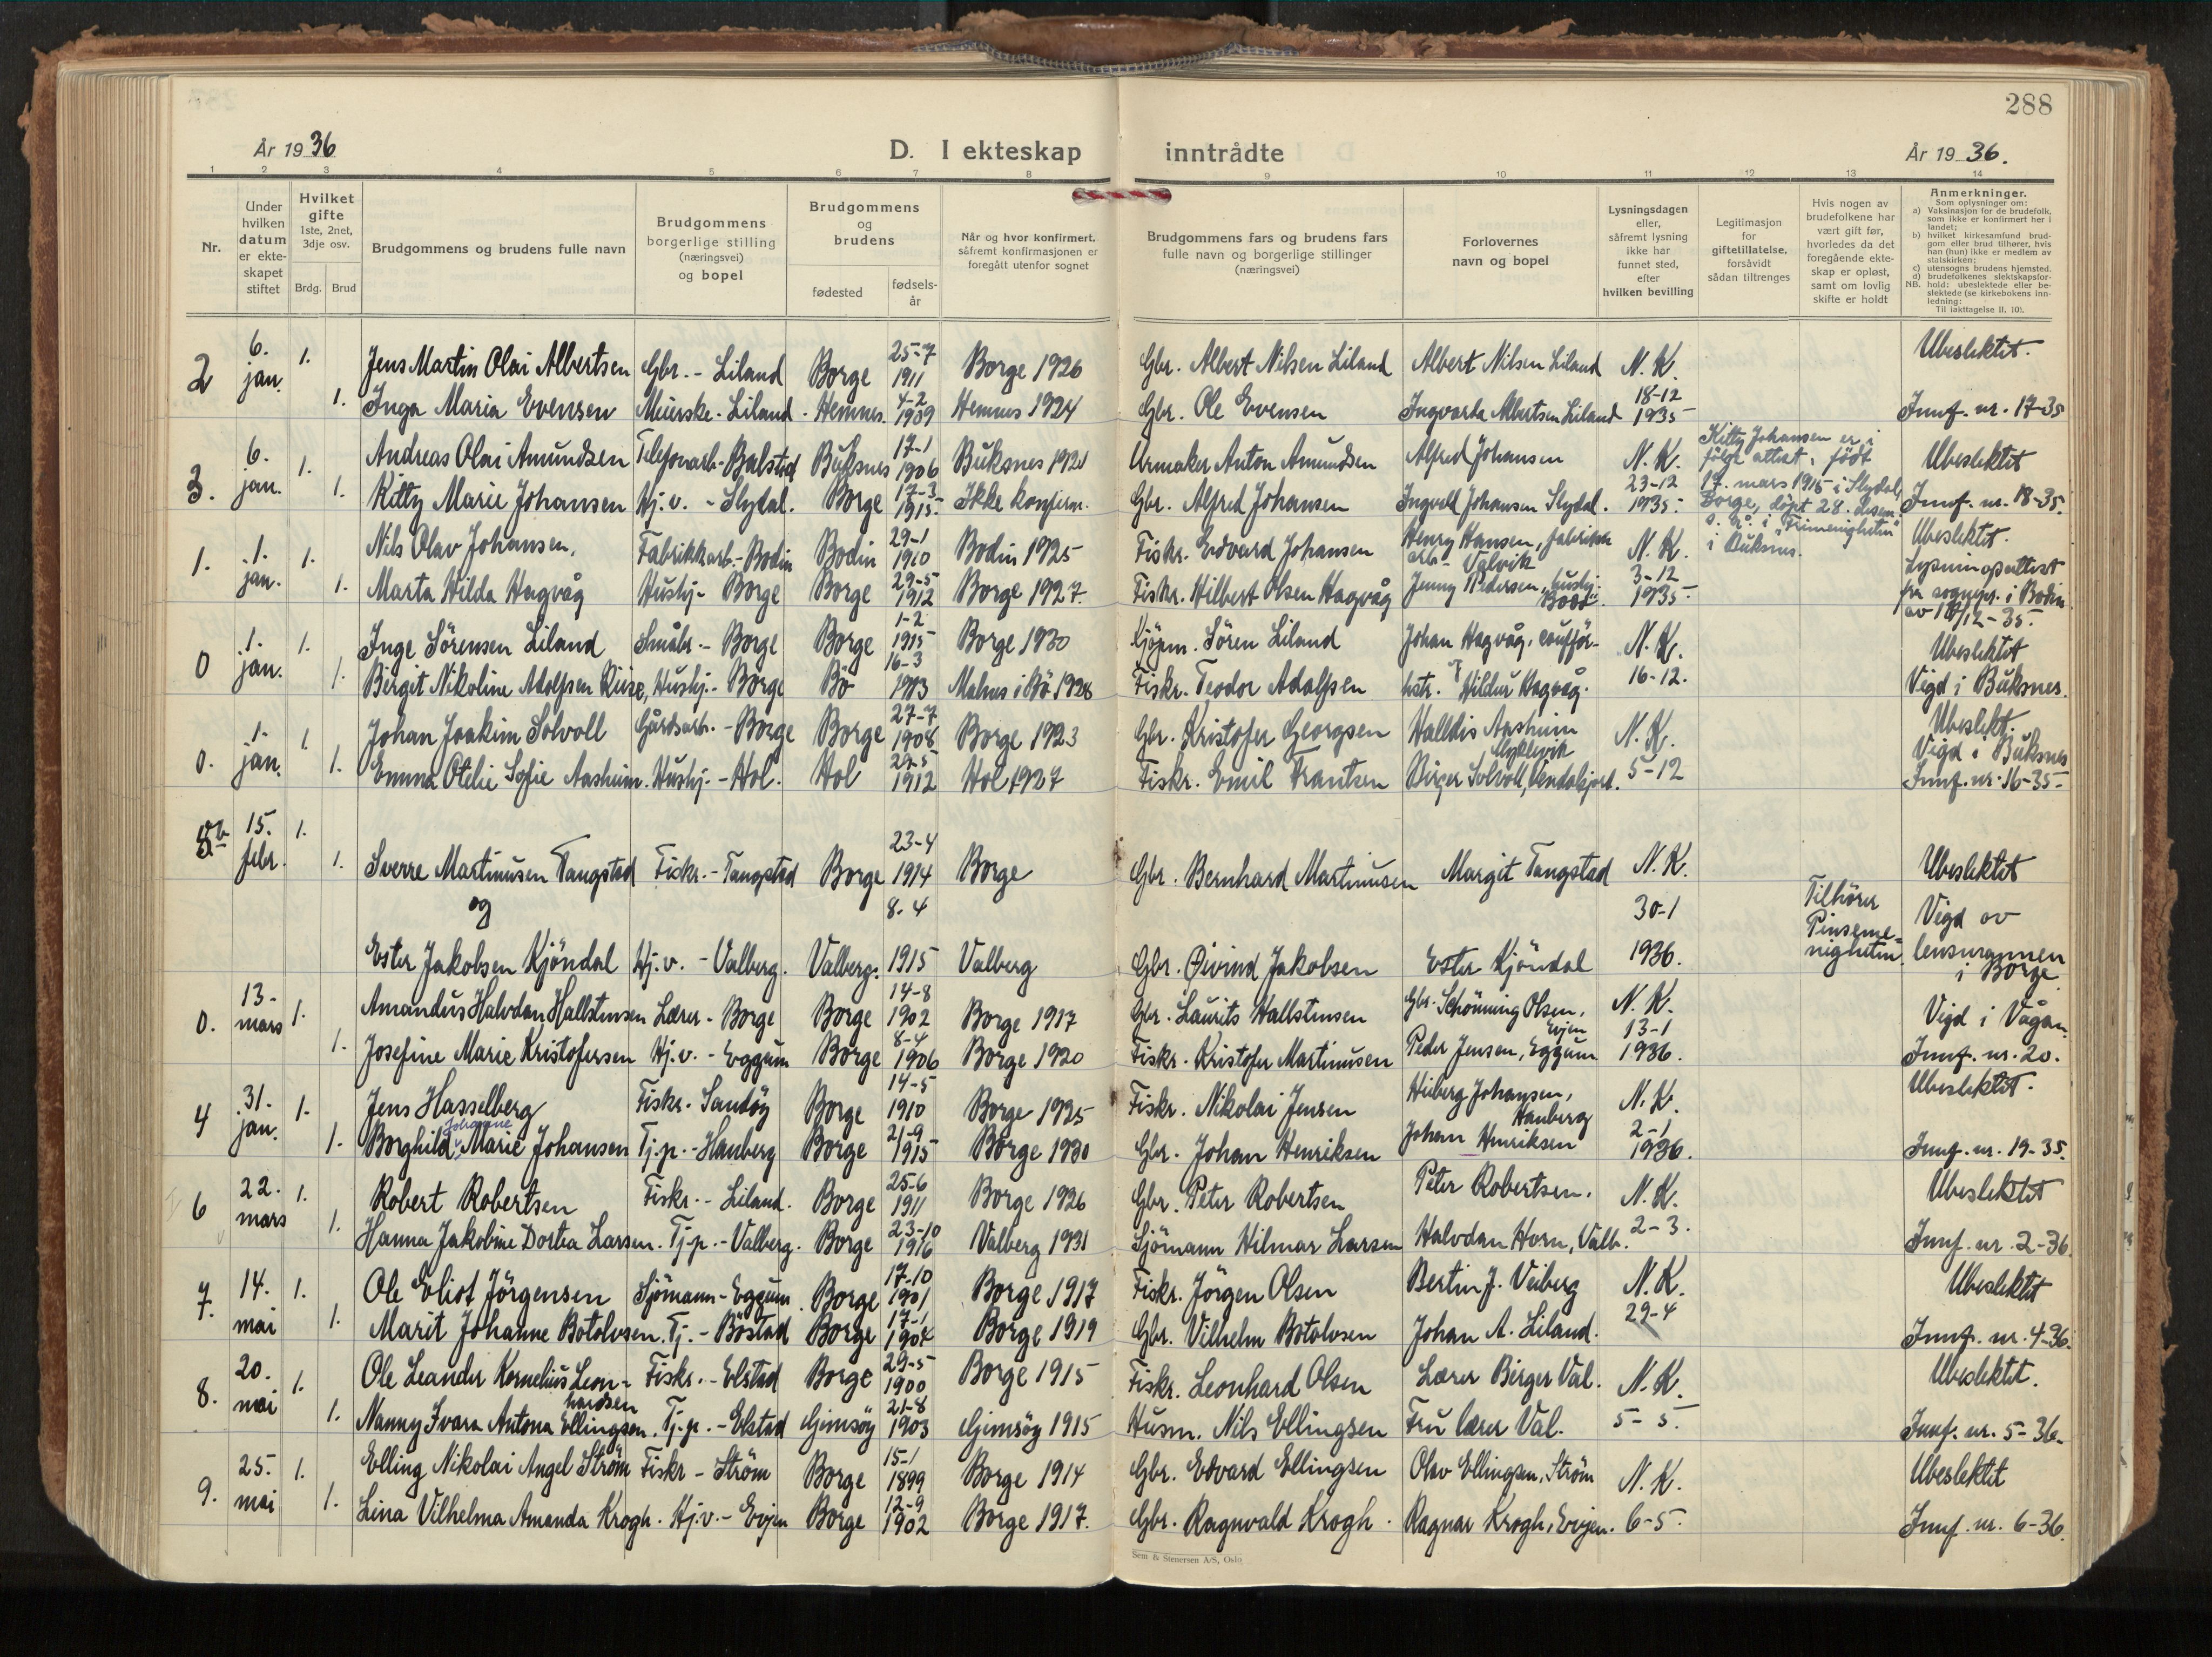 288
År 19 36
D. I ekteskap inntrådte
År 19 36.
1 2 3 4 5 6 7 8 9 10 11 12 13 14
Nr.
Under hvilken datum er ekteskapet stiftet
Hvilket gifte 1ste, 2net, 3dje osv.
Brdg. Brud
Brudgommens og brudens fulle navn
Brudgommens borgerlige stilling (næringsvei) og bopel
Brudgommens og brudens
fødested
fødselsår
Når og hvor konfirmert, såfremt konfirmasjonen er foregått utenfor sognet
Brudgommens fars og brudens fars fulle navn og borgerlige stillinger (næringsvei)
Forlovernes navn og bopel
Lysningsdagen eller, såfremt lysning ikke har funnet sted, efter hvilken bevilling
Legitimasjon for giftetillatelse, forsåvidt sådan tiltrenges
Hvis nogen av brudefolkene har vært gift før, hvorledes da det foregående ekteskap er opløst, samt om lovlig skifte er holdt
Anmerkninger.
Som oplysninger om:
a) Vaksinasjon for de brudefolk, som ikke er konfirmert her i landet;
b) hvilket kirkesamfund brudgom eller brud tilhører, hvis han (hun) ikke er medlem av statskirken;
c) utensogns brudens hjemsted.
d) brudefolkenes slektskapsforhold: ubeslektede eller beslektede (se kirkebokens innledning:
NB.
Til iakttagelse II. 10).
2 6. jan. 1. Jens Martin Olai Albertsen Gbr. - Liland Borge 25-7 1911 Borge 1926 Gbr. Albert Nilsen Liland Albert Nilsen Liland N. K. Ubeslektet.
1. Inga Maria Evensen Meierske - Liland - Hemnes 4-2 1909 Hemnes 1924 Gbr. Ole Evensen Ingvarda Albertsen Liland 18-12 1935 Innf. nr. 17-35
3. 6. jan. 1. Andreas Olai Amundsen Telefonarb. - Balstad Buksnes 17-1 1906 Buksnes 1921 Urmaker Anton Amundsen Alfred Johansen N. K. Ubeslektet
1. Kitty Marie Johansen Hj. v. - Slydal. Borge 17-3 1915 Ikke konferm. Gbr. Alfred Johansen Ingvald Johansen Slydal. 23-12 1935. Innf. nr. 18-35.
Kitty Johansen er i følge attest, født 17. mars 1915 i Slydal, Borge, døpt 28. desem. s. å. i "Frimenigheten" i Buksnes.
1. 1. jan. 1. Nils Olav Johansen. Fabrikkarb. - Bodin Bodin 29-1 1910 Bodin 1925 Fiskr. Edvard Johansen Henry Hansen, fabrikk arb. Valvik N. K. Ubeslektet.
1. Marta Hilda Hagvåg Hushj - Borge Borge 29-5 1912 Borge 1927. Fiskr. Hilbert Olsen Hagvåg Jenny Pedersen, hushj. Bodö. 3-12 1935. Lysningsattest fra sognepr. i Bodin av 19/12-35.
0 1. jan. 1. Inge Sörensen Liland Småbr. - Borge Borge 1-2 1915 Borge 1930 Kjöpm. Sören Liland Johan Hagvåg, sauffjör- N. K. Ubeslektet
1. Birgit Nikoline Adolfsen Riise, Hushj. - Borge Bö 16-3 1913 Malnes i Bö 1928 Fiskr. Teodor Adolfsen hstr. Hildur Hagvåg. 16-12. Vigd i Buksnes.
0. 1. jan. 1. Johan Joakim Solvoll Gårdsarb. - Borge Borge 27-7 1908 Borge 1923 Gbr. Kristofer Georgsen Halldis Aasheim Myklevik N. K. Ubeslekt. Vigd i Buksnes
1. Emma Otelie Sofie Aasheim. Hushj. - Hol. Hol 29-5 1912 Hol 1927 Fiskr. Emil Frantsen Birger Solvoll, Vendalsjord. 5-12 Innf. nr. 16-35-
5. 15. febr. 1. 1. Sverre Martinusen Tangstad Fiskr. - Tangstad Borge 23-4 1914 Borge Gbr. Bernhard Martinusen Margit Tangstad N. K. Ubeslektet
og
Ester Jakobsen Kjöndal Hj. v. - Valberg. Valberg. 8-4 1915 Valberg Gbr. Øivind Jakobsen Ester Kjöndal 30-1 1936. Tilhörer Pinsemenigheten. Vigd av lensmannen i Borge
0. 13. mars 1. Amandus Halvdan Hallstensen Lærer - Borge Borge 14-8 1902 Borge 1917 Gbr. Laurits Hallstensen Gbr. Schönning Olsen, Evjen N. K. Vigd i Vågan.
1. Josefine Marie Kristofersen Hj. v. - Eggum Borge 8-4 1906 Borge 1920 Fiskr. Kristofer Martinusen Peder Jensen, Eggum 13-1 1936. Innf. nr. 20.
4 31. jan. 1. Jens Hasselberg Fiskr. Sandöy Borge 14-5 1910 Borge 1925 Fiskr. Nikolai Jensen Heiberg Johansen, Hauberg N. K. Ubeslektet.
1. Borghild Johanne Marie Johansen Tj. p. - Hauberg Borge 21-9 1915 Borge 1930 Gbr. Johan Henriksen Johan Henriksen 2-1 1936. Innf. nr. 19-35.
6 22. mars 1. Robert Robertsen Fiskr. - Liland. Borge 25-6 1911 Borge 1926 Gbr. Peter Robertsen Peter Robertsen. N. K. Ubeslektet
1. Hanna Jakobine Dortea Larsen. Tj. p. - Valberg. Borge 23-10 1916 Valberg 1931 Sjömann Hilmar Larsen Halvdan Horn, Valb. 2-3. Innf. nr. 2-36.
7. 14. mai 1. Ole Eliot Jörgensen Sjömann - Eggum. Borge 17-10 1901 Borge 1917 Fiskr. Jörgen Olsen Bertin J. Veiberg N. K. Ubeslektet
1. Marit Johanne Botolvsen. Tj. - Böstad Borge 17-1 1904 Borge 1919 Gbr. Vilhelm Botolvsen Johan A. Liland. 29-4 Innf. nr. 4-36.
8. 20. mai 1. Ole Leander Kornelius Leonhardsen Fiskr. - Elstad Borge 29-5 1900 Borge 1915 Fiskr. Leonhard Olsen Lærer Birger Val. N. K. Ubeslektet.
1. Nanny Ivara Antona Ellingsen. Tj. p. - Elstad Gimsöy 21-8 1903 Gimsöy 1915 Husm. Nils Ellingsen Fru lærer Val. 5-5. Innf. nr. 5-36.
9. 25. mai 1. Elling Nikolai Angel Ström Fiskr - Ström Borge 15-1 1899 Borge 1914 Gbr. Edvard Ellingsen Olav Ellingsen, Ström N. K. Ubeslektet
1. Lina Vilhelma Amanda Krogh. Hj. v. - Evjen Borge 12-9 1902 Borge 1917. Gbr. Ragnvald Krogh. Ragnar Krogh, Evjen. 6-5. Innf. nr. 6-36.
Sem & Stenersen A/S, Oslo